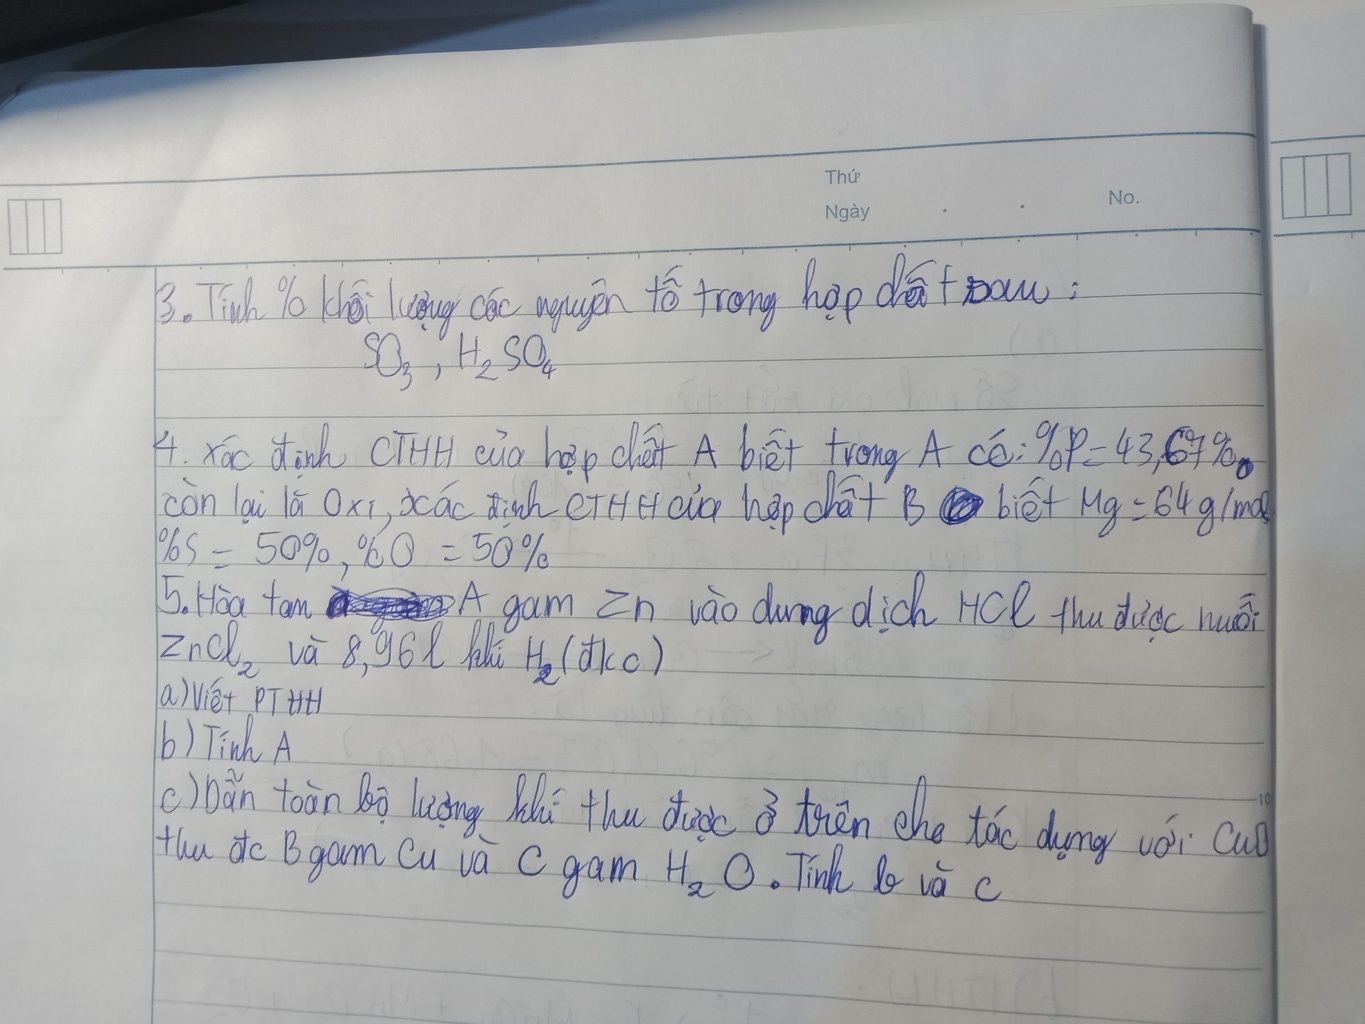 Thứ
Ngày . . No.
3. Tính % khối lượng các nguyên tố trong hợp chất sau:
SO3, H2SO4
4. Xác định CTHH của hợp chất A biết trong A có: %P = 43,67%.
còn lại là Oxi, xác định CTHH của hợp chất B biết Mg = 64 g/mol
%S = 50%, %O = 50%
5. Hòa tan A gam Zn vào dung dịch HCl thu được muối
ZnCl2 và 8,96l khí H2 (đkc)
a) Viết PTHH
b) Tính A
10
c) Dẫn toàn bộ lượng khí thu được ở trên cho tác dụng với CuO
thu đc B gam Cu và C gam H2O. Tính b và c